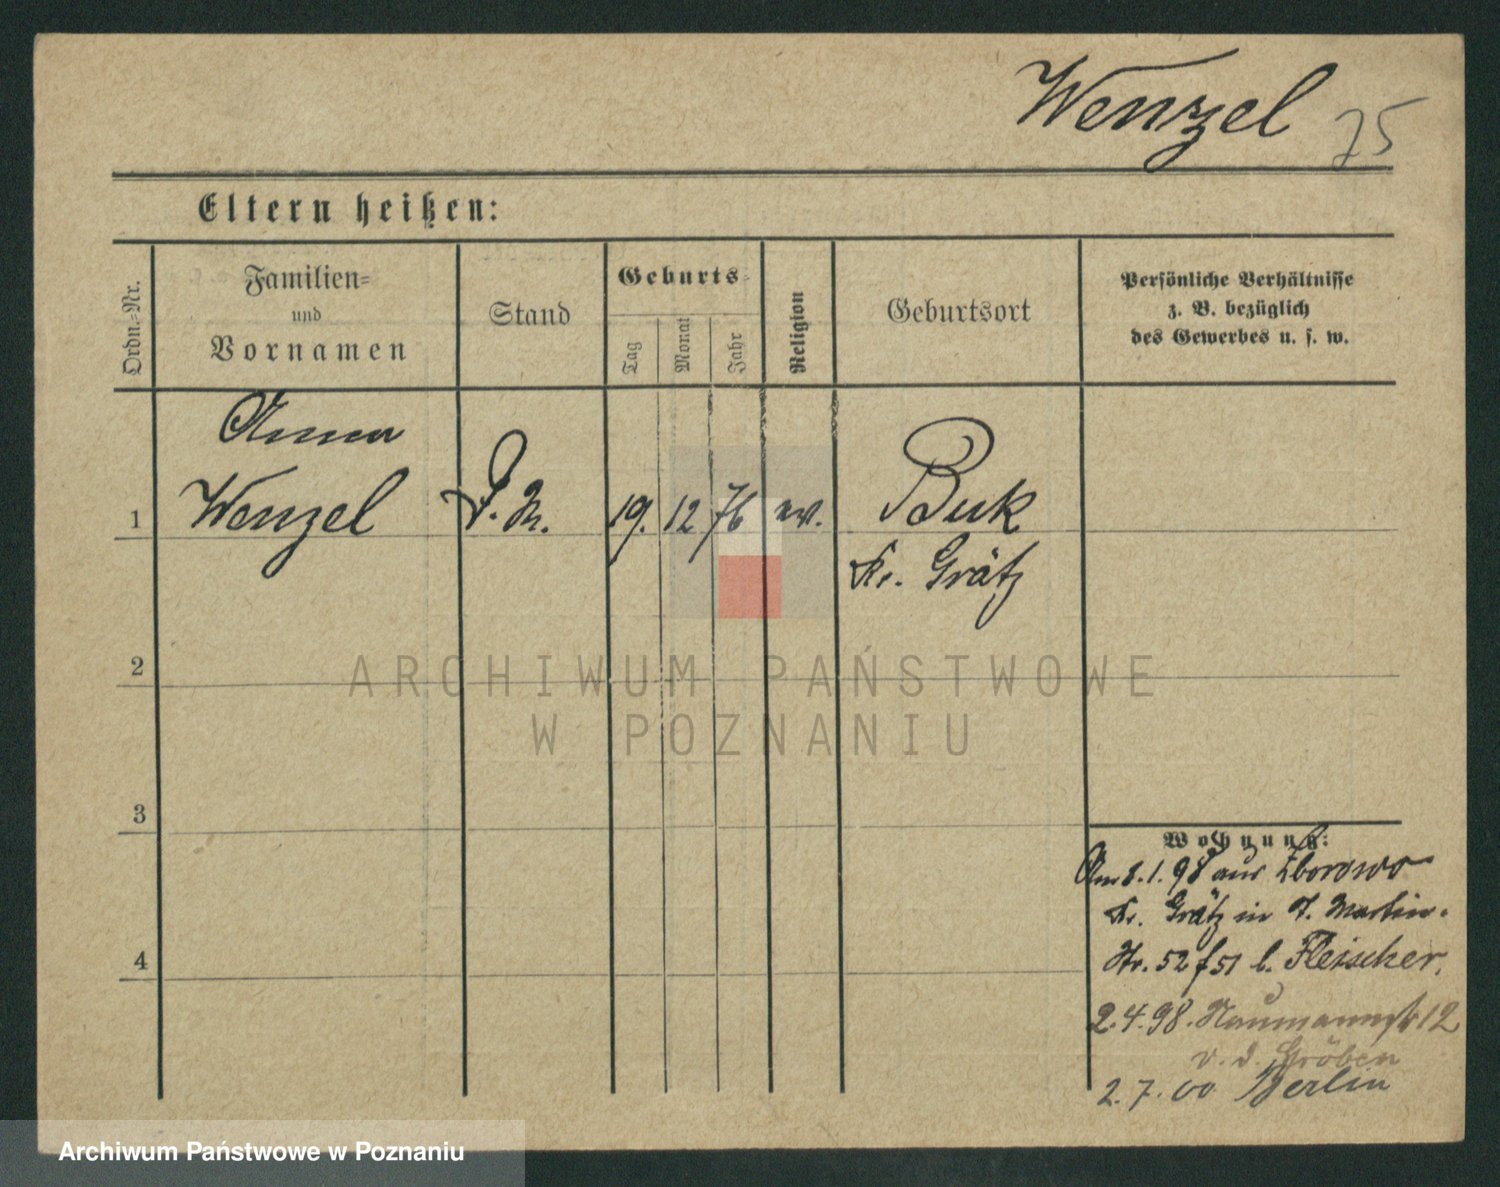 Wenzel 75
Eltern heißen:
Ordn.=Nr.
Familien=
und
Vornamen
Stand
Geburts=
Tag
Monat
Jahr
Religion
Geburtsort
Persönliche Verhältnisse
z. B. bezüglich
des Gewerbes u. s. w.
Anna
1 Wenzel 19. 12 76 ev. Buk
Kr. Grätz
2
3
4
Wohnung:
Am 8.1.98 aus Zborowo
Kr. Grätz in St. Martin-
Str. 52/51 b. Fleischer.
2.4.98. Naumannstr 12
v. d. Gröben
2.7.00 Berlin
ARCHIWUM PAŃSTWOWE
W POZNANIU
Archiwum Państwowe w Poznaniu